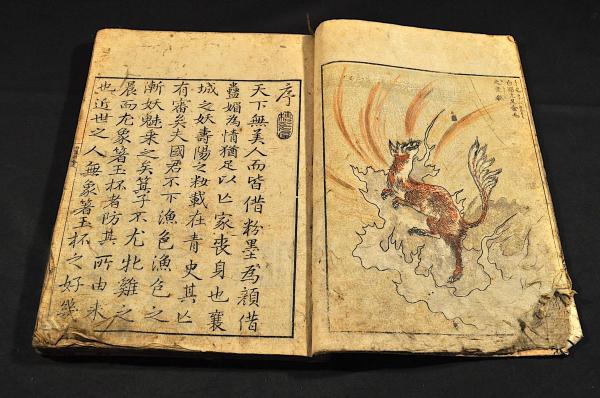 序
天下無美人而皆借粉墨為顔借
蠱媚為情猶足以亡家喪身也襄
城之妖壽陽之粧載在青史其亡
有審矣夫國君不下漁色漁色之
漸妖魅乗之矣箕子不尤牝雞之
晨而尤象箸玉杯者防其所由来
也近世之人無象箸玉杯之好幾